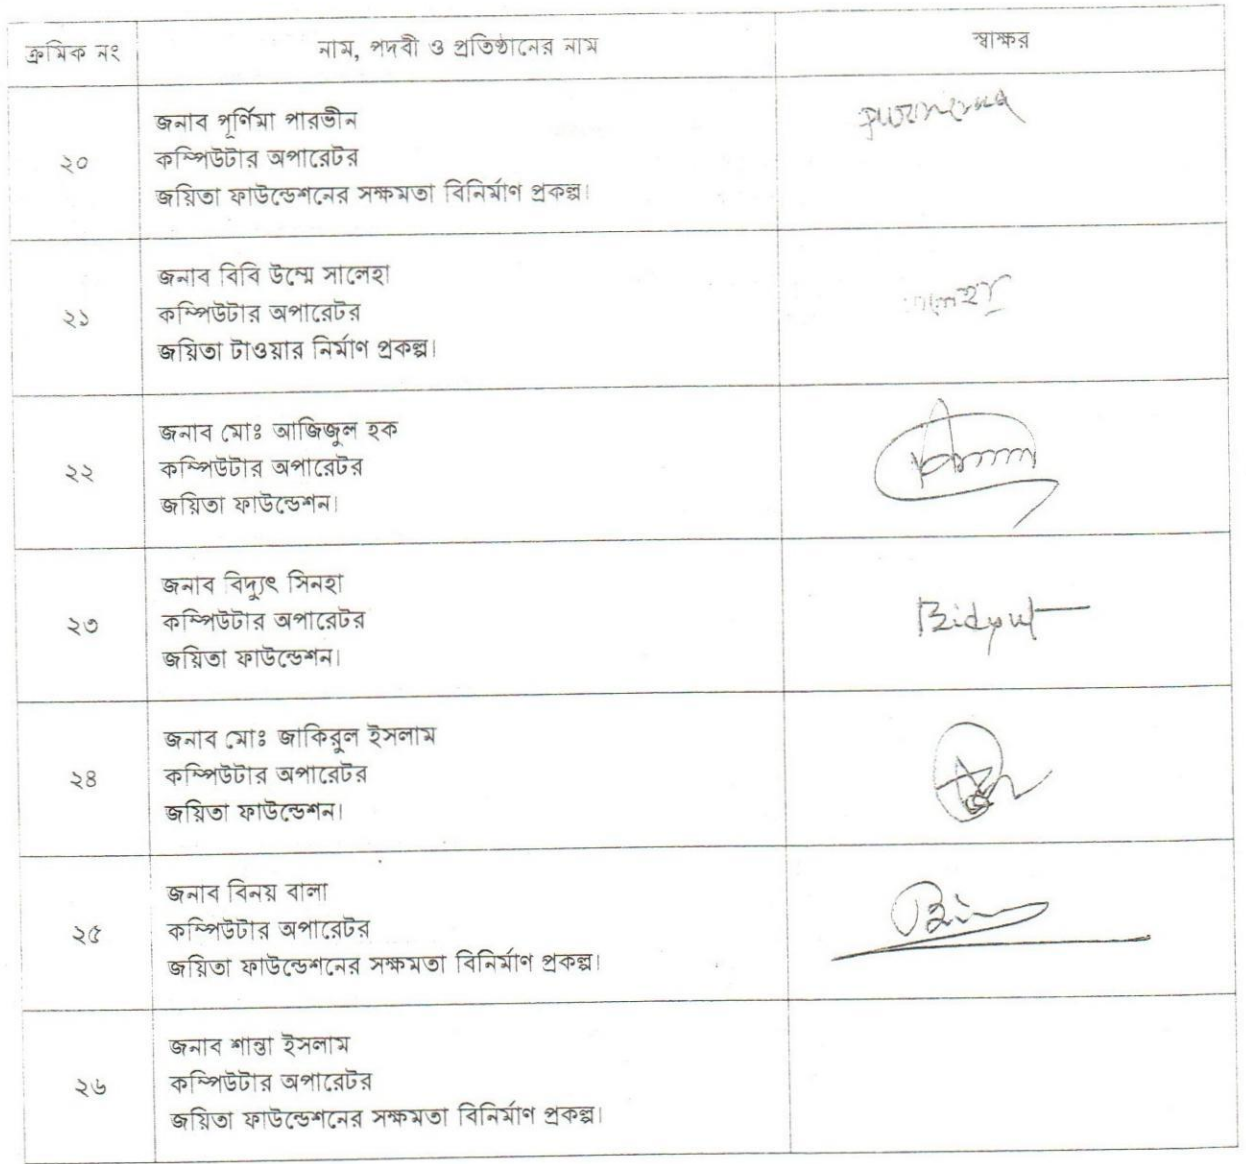 ক্রমিক নং নাম, পদবী ও প্রতিষ্ঠানের নাম স্বাক্ষর
জনাব পূর্ণিমা পারভীন
২০ কম্পিউটার অপারেটর
জয়িতা ফাউন্ডেশনের সক্ষমতা বিনির্মাণ প্রকল্প।
জনাব বিবি উম্মে সালেহা
২১ কম্পিউটার অপারেটর
জয়িতা টাওয়ার নির্মাণ প্রকল্প।
জনাব মোঃ আজিজুল হক
২২ কম্পিউটার অপারেটর
জয়িতা ফাউন্ডেশন।
জনাব বিদ্যুৎ সিনহা
২৩ কম্পিউটার অপারেটর Bidyut
জয়িতা ফাউন্ডেশন।
জনাব মোঃ জাকিরুল ইসলাম
২৪ কম্পিউটার অপারেটর
জয়িতা ফাউন্ডেশন।
জনাব বিনয় বালা
২৫ কম্পিউটার অপারেটর
জয়িতা ফাউন্ডেশনের সক্ষমতা বিনির্মাণ প্রকল্প।
জনাব শান্তা ইসলাম
২৬ কম্পিউটার অপারেটর
জয়িতা ফাউন্ডেশনের সক্ষমতা বিনির্মাণ প্রকল্প।